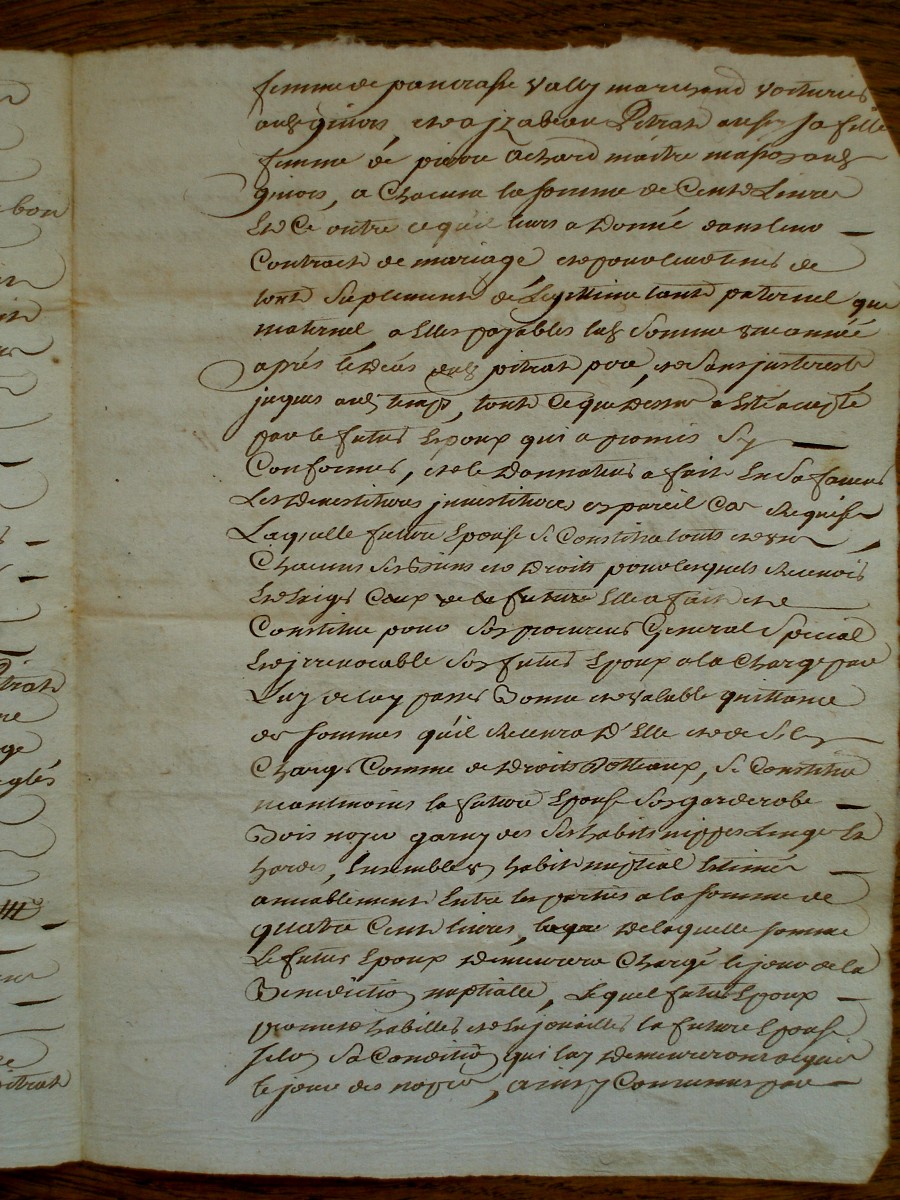 bon
femme de pancrasse Vally marchand voiturier
aud givors, et a jzabeau Pitrat aussy sa fille
femme de pierre achard maitre masson aud
givors, a chacune la somme de Cent Livres
Et Ce outre ce qu'il leurs a Donné dans leur
Contract de mariage et pour leur tenir de
tout Suplement de Legitime tant paternel que
maternel, a Elles payables lad somme une année
aprés le Déces dud pitrat pere, et Sans jnterest
jusques aud temps, tout Ce que Dessus a Eté accepté
par le futur Epoux qui a promis Sy
Conformer, et le Donnateur a fait En Sa faveur
Les Devestitures jnvestitures en pareil Cas Requises
Laquelle future Epouse Se Constitue touts et un
Chacuns Ses Biens et Droits pour lesquels Recevoir
Et Exiger Ceux de la future Elle a fait et
Constitué pour Son procureur General Special
Et jrrevocable Son futur Epoux a la Charge par
Luy de luy passer Bonne et valable quittance
des sommes qu'il Recevra D'Elle et de S'en
Charger Comme de Droits Dottaux, Se Constitue
neantmoins la future Epouse Son garderobe
Bois noyer garny des Ses habits nippes Linge Et
hardes, Ensemble habit nuptial Estimé
amiablement Entre les parties a la somme de
quatre Cent livres, De laquelle somme
Le futur Epoux Demeurera Chargé le jour de la
Benediction nuptialle, Lequel futur Epoux
promet habiller et Enjoailler la future Epouse
selon Sa Condition qui luy Demeureront acquis
le jour des noces, ainsy Convenus par